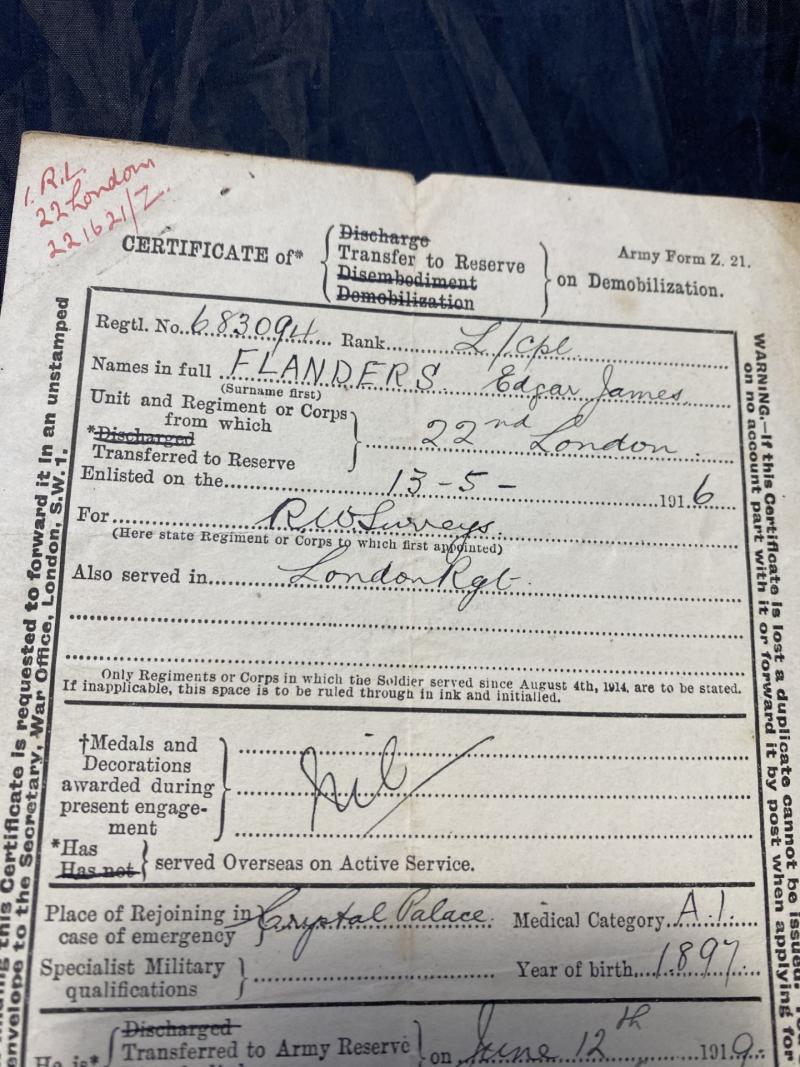 1. R.L.
22 London
221621/Z.
Army Form Z. 21.
CERTIFICATE of*
Discharge
Transfer to Reserve
Disembodiment
Demobilization
on Demobilization.
Regtl. No. 683094 Rank L/cpl.
Names in full FLANDERS Edgar James
(Surname first)
Unit and Regiment or Corps
from which
*Discharged
Transferred to Reserve
22nd London
Enlisted on the 13-5- 1916
For R W Surreys.
(Here state Regiment or Corps to which first appointed)
Also served in London Rgt.
Only Regiments or Corps in which the Soldier served since August 4th, 1914, are to be stated.
If inapplicable, this space is to be ruled through in ink and initialled.
†Medals and
Decorations
awarded during
present engage-
ment
Nil
*Has
Has not
served Overseas on Active Service.
Place of Rejoining in
case of emergency
Crystal Palace. Medical Category A.1.
Specialist Military
qualifications
Year of birth 1897
He is*
Discharged
Transferred to Army Reserve
on June 12th 1919.
WARNING.—If this Certificate is lost a duplicate cannot be issued.
on no account part with it or forward it by post when applying for
this Certificate is requested to forward it in an unstamped
envelope to the Secretary, War Office, London, S.W. 1.